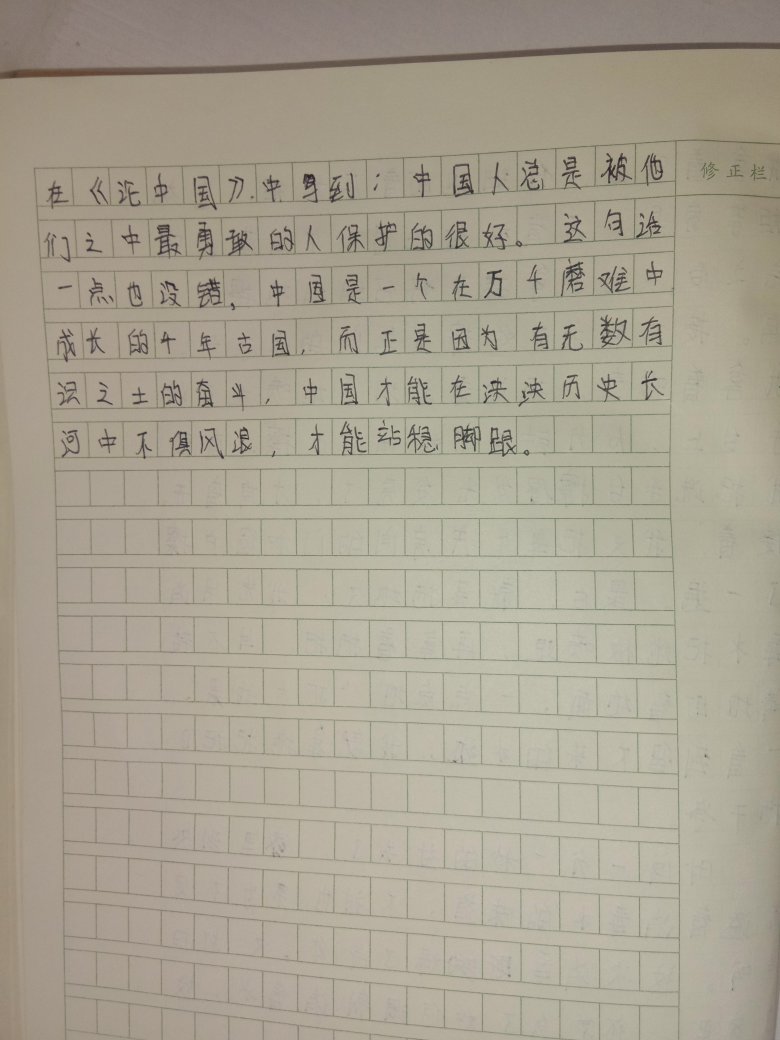 在《论中国》中写到：中国人总是被他 修正栏
们之中最勇敢的人保护的很好。这句话
一点也没错，中国是一个在万千磨难中
成长的千年古国，而正是因为有无数有
识之士的奋斗，中国才能在泱泱历史长
河中不惧风浪，才能站稳脚跟。